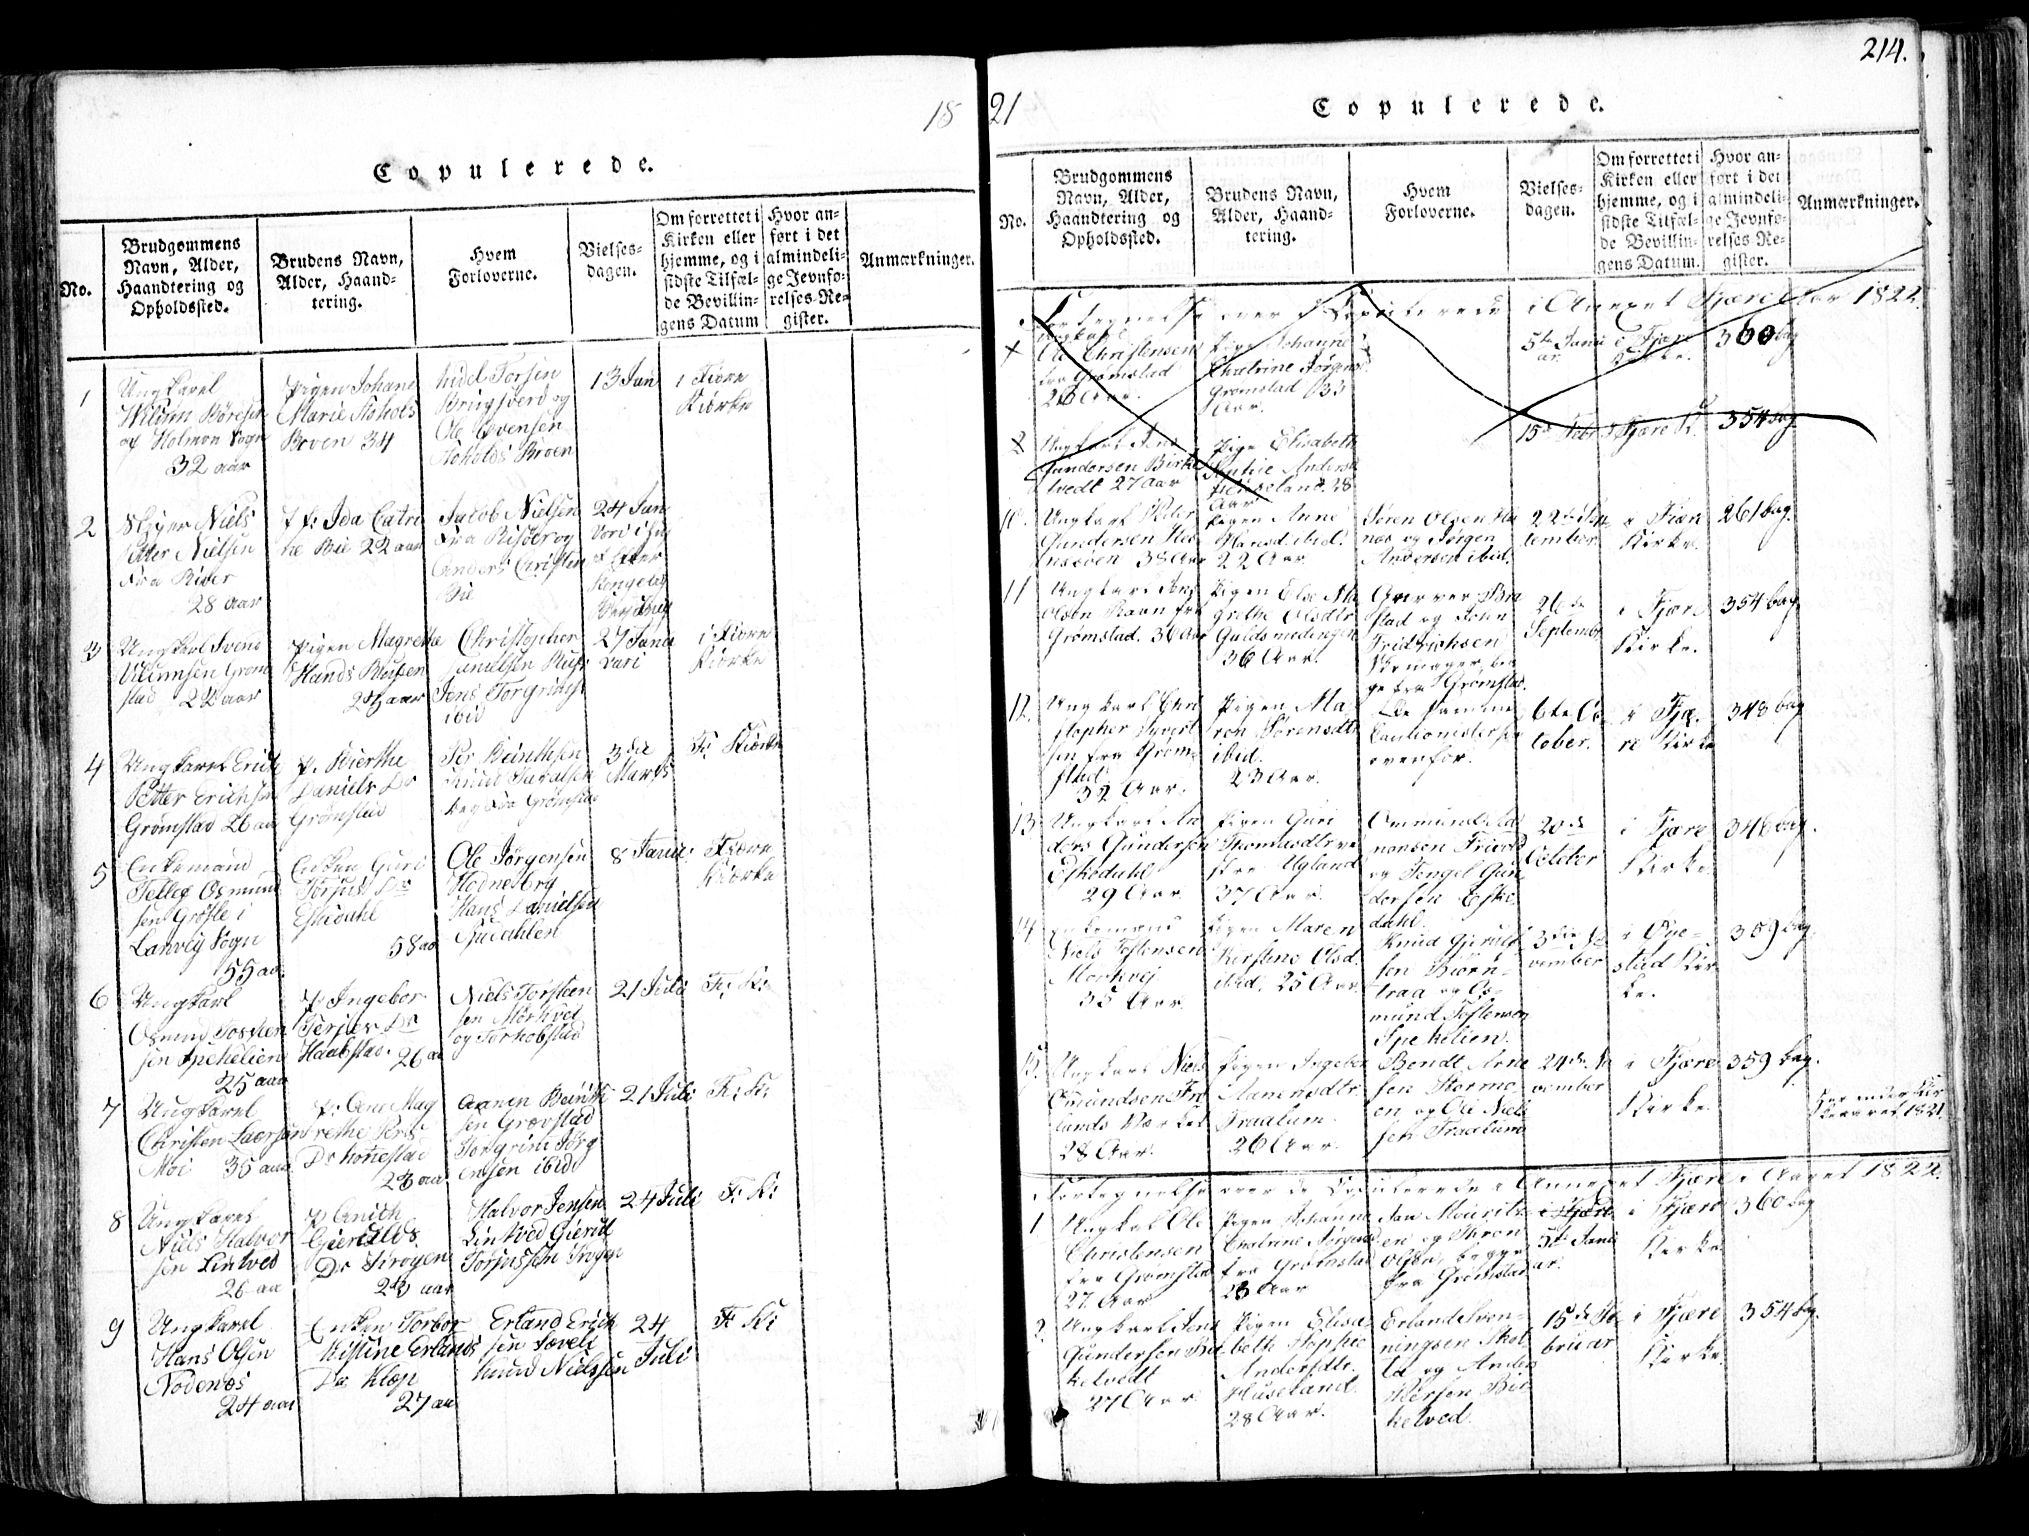 18
Copulerede.
No.
Brudgommens
Navn, Alder,
Haandtering og
Opholdssted.
Brudens Navn,
Alder, Haand-
tering.
Hvem
Forloverne.
Vielses-
dagen.
Om forrettet i
Kirken eller
hjemme, og i
sidste Tilfæl-
de Bevillin-
gens Datum
Hvor an-
ført i det
almindeli-
ge Jevnfø-
relses-Re-
gister.
Anmærkninger.
1
Ungkarel
af Holmen Sogn
32 aar
Pigen Johane
Marie
Boven 34
Ole Evensen
13 Jan
i Fiære
Kiørke
2
Niels
Petter Nielsen
fra Riser
28 aar
P: Ida Catri
ne Bie 22 aar
Jacob Nielsen
fra Risøer og
Anders Christen
Bie
24 Jan
3
Ungkarl Svend
Grøm
stad 22 aar
Pigen Magrethe
Hans
aar
Christopher
Danielsen
Jens Torgrims
ibid
27 Janu
vari
i Fiære
Kiørke
4
Ungkarel Erich
Petter Erichsen
Grømstad 26 aar
P. Bierthe
Daniels Dr
Grømstad
Per Beinthsen
beg fra Grømstad
3die
Marts
F: Kiørke
5
Enkemand
Tellef Osmund
sen Grøsle i
Lanvig Sogn
55 aa
Enken Guri
Torjus Dr
Eskedahl
58 aa
Ole Jørgensen
Hodneberg
Hans Danielsen
8 Janu:
Fiære
Kiørke
6
Ungkarl
Osmund Tosten
sen Spekelien
25 aar
P. Ingebor
Terjes Dr
Haabstad. 26 aa
Niels Torsten
sen Mørkved
og Tor Hobstad
21 Juli
F: K:
7
Ungkarel
Christen Laersen
Moi 35 aar
P: Ane Mag
rethe Pers
Dr
23 aar
Aanen Beinth
sen Grøvstad
Torgrim Jørg
ensen ibid
21 Juli
F: K:
8
Ungkarel
Niels Halvor
sen Lintved
26 aa
P Anich
Gieruls
Dr Krogen
23 aar
Halvor Jensen
Lintved Gierul
Torjussen Krogen
24 Juli
F: K:
9
Ungkarel
Hans Olsen
Nodenæs
24 aar
Enken Torbor
Kistine Erlands
Dr Klep
27 aa
Erland Erich
sen Sævelie
Knud Nielsen
24
Juli
F: K:
21
214.
Copulerede.
No.
Brudgommens
Navn, Alder,
Haandtering og
Opholdssted.
Brudens Navn,
Alder, Haand-
tering.
Hvem
Forloverne.
Vielses-
dagen.
Om forrettet i
Kirken eller
hjemme, og i
sidste Tilfæl-
de Bevillin-
gens Datum.
Hvor an-
ført i det
almindeli-
ge Jevnfø-
relses-Re-
gister.
Anmærkninger.
Fortegnelse over de Copulerede i Annexet Fjære for 1822.
Ungkarl
Ole Christensen
fra Grømstad
26 Aar.
Pige Johanne
Chatrine Jørgensd
Grømstad 33
Aar.
5te Janu
ar.
i Fjære
Kirke.
360 bag
2
Ungkarl Jens
Gundersen Birke
tvedt 27 Aar
Pige Elisabeth
Sophie Andersd
Huseland. 28
Aar
15de Febr
i Fjære K.
354 bag.
10.
Ungkarl Peder
Gundersen Hes
nesøen 38 Aar
Pigen Anne
Hansd. ibid.
22 Aar.
Søren Olsen Hes
nes og Jørgen
Andersen ibid.
22de Sep
tember.
i Fjære
Kirke.
261 bag.
11
Ungkarl Jens
Olsen Ravn fra
Grømstad. 36 Aar
Pigen Else Ma
grethe Olsdtr.
Guldsmedengen
36 Aar.
stad og John
Fridrichsen
ge fra Grømstad.
26de
Septembr.
i Fjære
Kirke.
354 bag.
12.
Ungkarl Chri
stopher Syvert
sen fra Grøm
stad.
32 Aar.
Pigen Ma
ren Sørensdtr.
ibid.
23 Aar.
De samme
Cautionister som
ovenfor.
6te Oc
tober.
i Fjæ-
re Kirke
348 bag
13.
Ungkarl An
ders Gundersen
Eskedahl
29 Aar.
Pigen Guri
Thomasdtr. ve
stre Ugland
37 Aar.
Ommund Aa
nonsen Frivold
og Tengel Gun
dersen Eske
dahl.
20de
October
i Fjære
Kirke.
346 bag.
14
Enkemand
Niels Tostensen
Morkvej
35 Aar.
Pigen Maren
Kirstine Olsd.
ibid. 25 Aar.
Knud Gjerulf
sen Biørn-
traa og Os-
mund Tostensen
Spekelien.
3die No
vember
i Øye-
stad Kir
ke.
359 bag.
15.
Ungkarl Niels
Omundsen Fru
lands Værket
28 Aar.
Pigen Ingebor
Aanensdtr.
Traalum.
26 Aar.
Bendt Arne
sen Stormo
en og Ole Niel
sen Traalum
24de No
vember
i Fjære
Kirke.
359 bag.
Fortegnelse over de Copulerede i Annexet Fjære i Aaret 1822.
1
Ungkarl Ole
Christensen
fra Grømstad
27. Aar
Pigen Johanne
Chatrine Jørgensd
fra Grømstad
28 Aar
Jan Mourits
en og Thron
Olsen, begge
fra Grømstad
5te Janu
ar.
i Fjære
Kirke.
360 bag
2.
Ungkarl Jens
Gundersen Bir
ketvedt
27 Aar.
Pigen Elisa
beth Sophie
Andersdtr.
Huseland.
28 Aar.
Erland Sven-
ningsen Skol
ld og Anders
Persen Bir
ketved.
15de Fe
bruar
i Fjære
Kirke
354 bag.